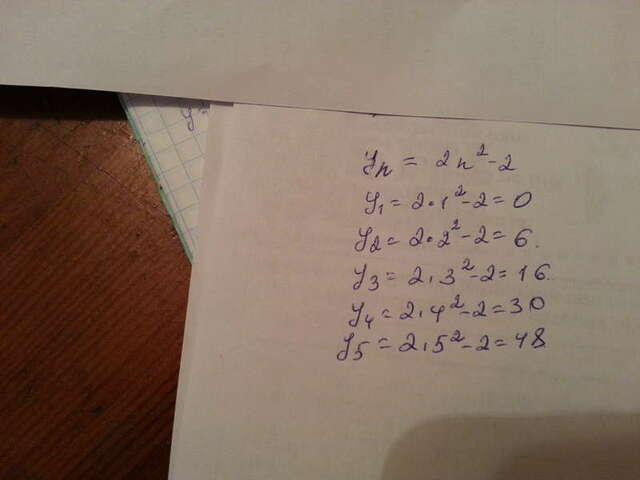 y
yₙ = 2n² - 2
y₁ = 2·1² - 2 = 0
y₂ = 2·2² - 2 = 6.
y₃ = 2·3² - 2 = 16.
y₄ = 2·4² - 2 = 30
y₅ = 2·5² - 2 = 48